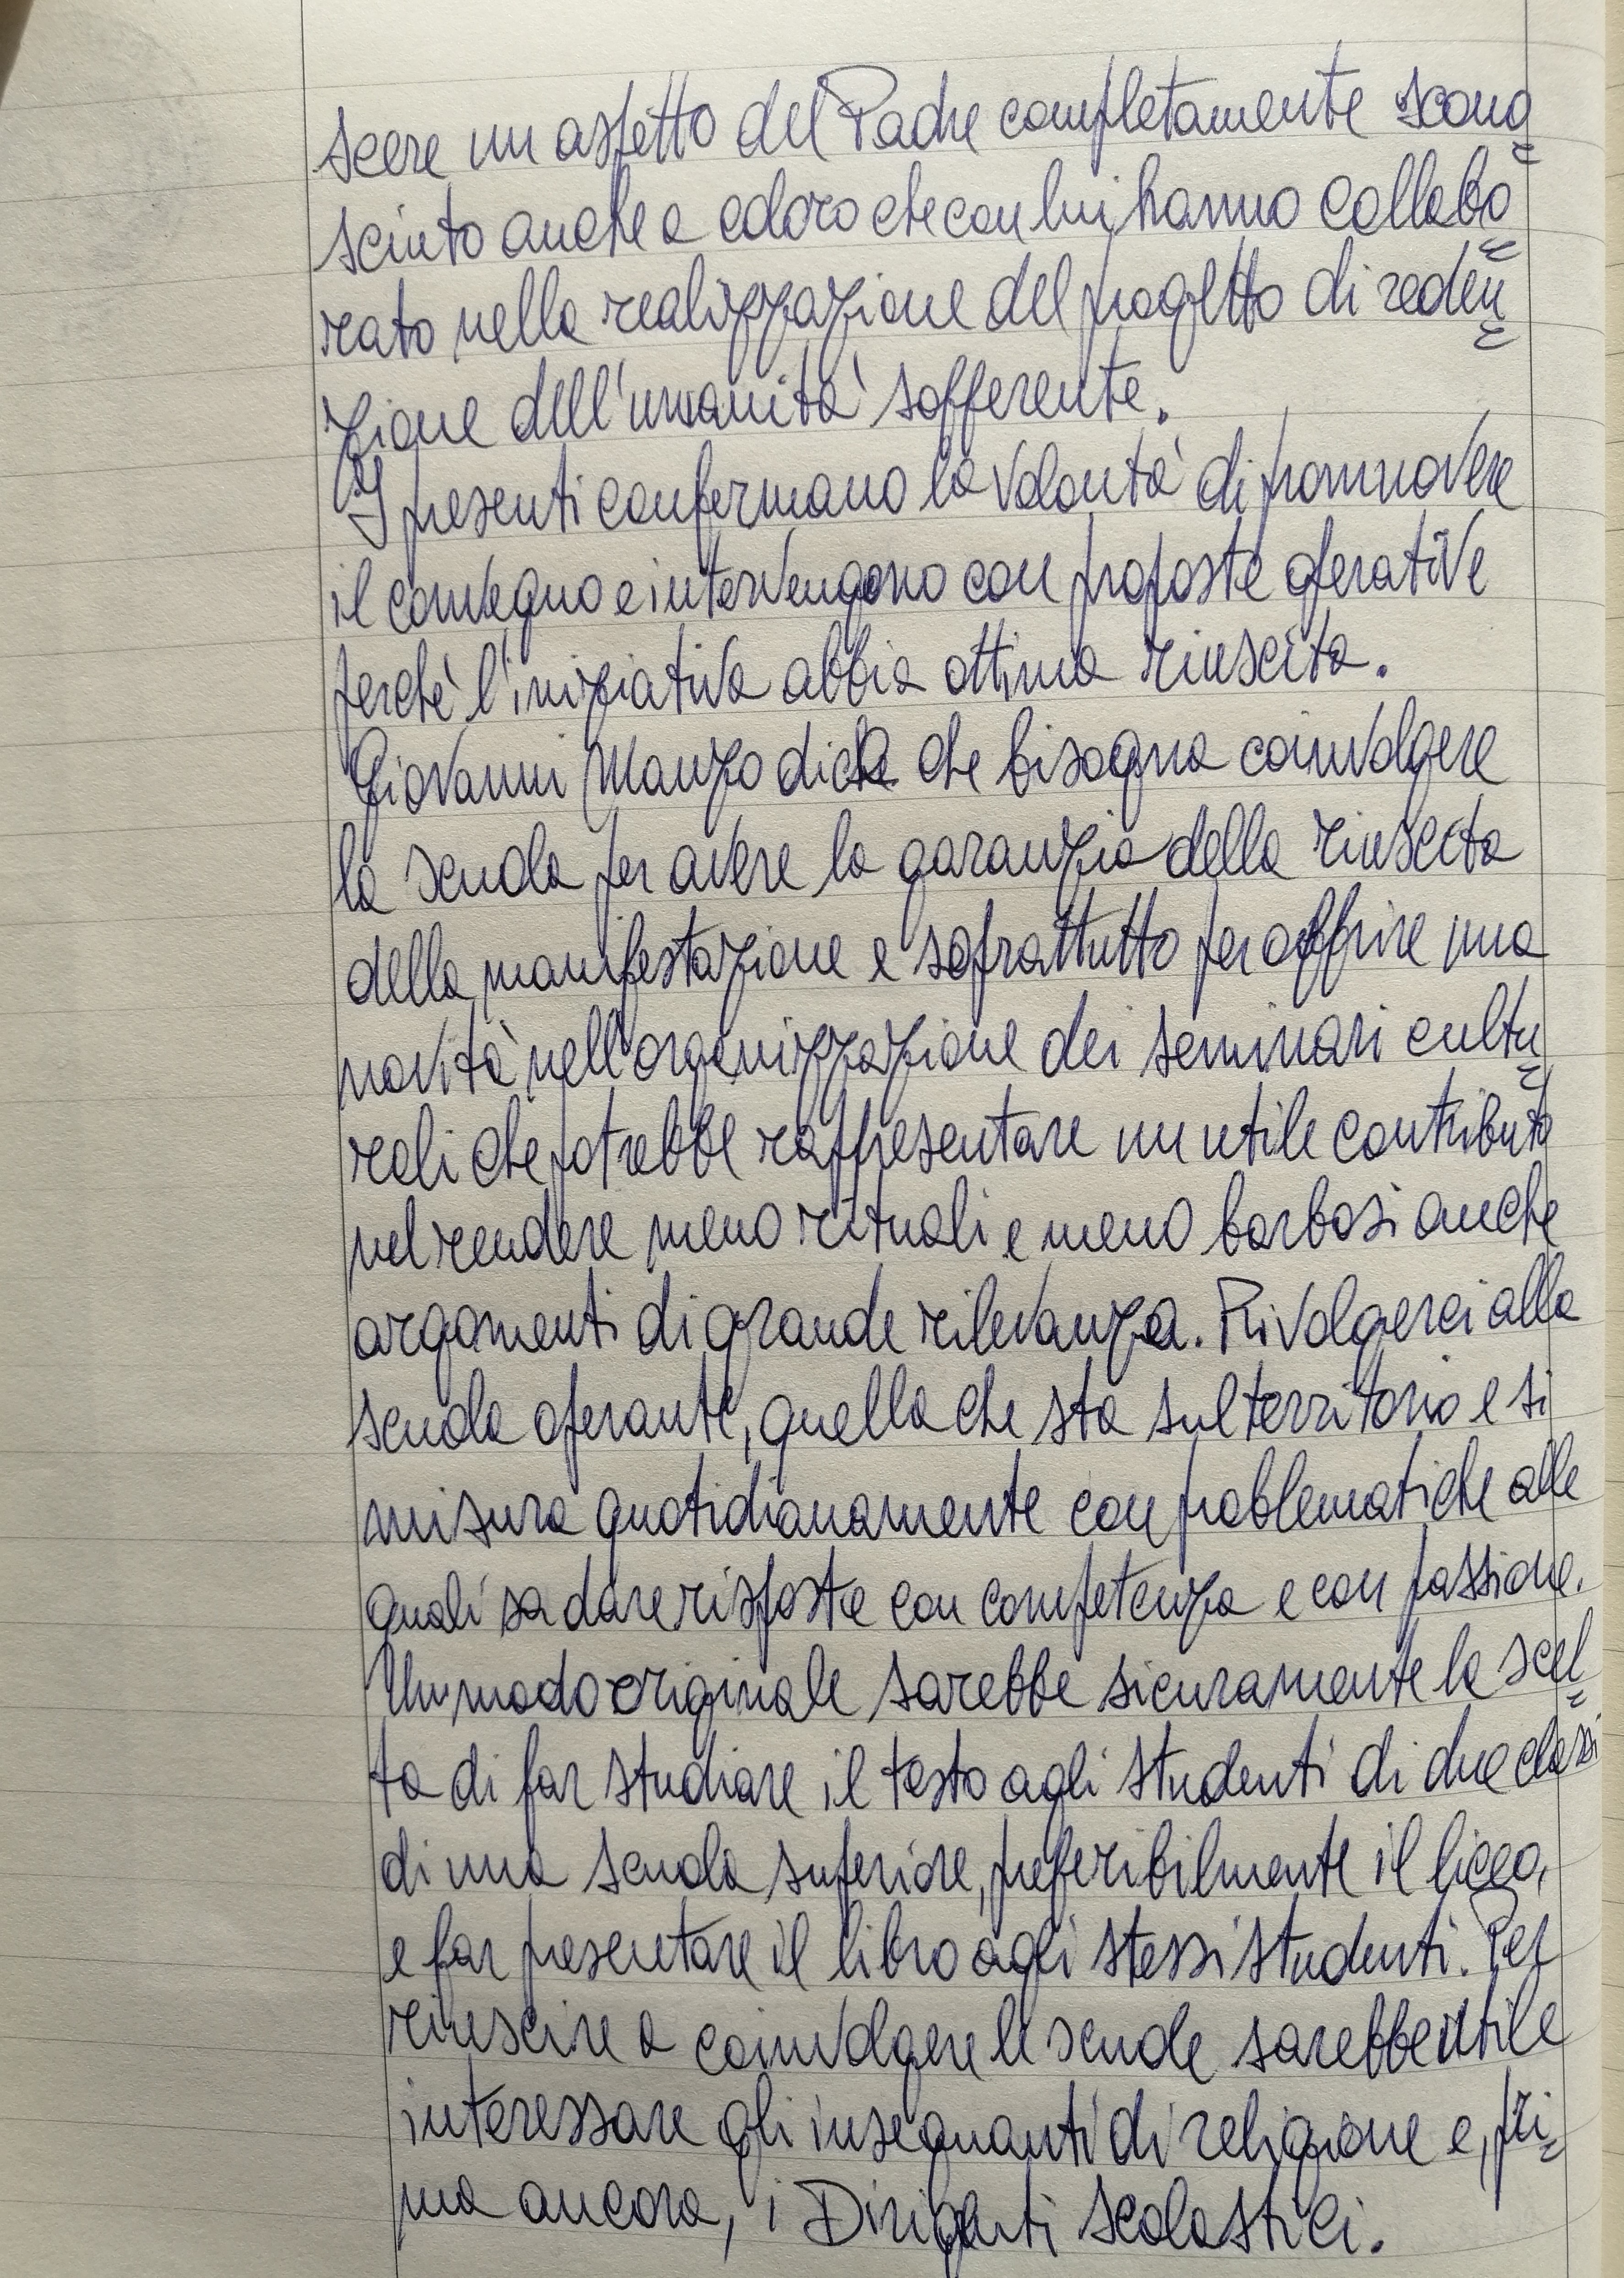 scere un aspetto del Padre completamente scono=
sciuto anche a coloro che con lui hanno collabo=
rato nella realizzazione del progetto di reden=
zione dell'umanità sofferente.
I presenti confermano la volontà di promuovere
il convegno e intervengono con proposte operative
perchè l'iniziativa abbia ottima riuscita.
Giovanni Manzo dice che bisogna coinvolgere
la scuola per avere la garanzia della riuscita
della manifestazione e soprattutto per offrire una
novità nell'organizzazione dei seminari cultu=
rali che potrebbe rappresentare un utile contributo
nel rendere meno rituali e meno barbosi anche
argomenti di grande rilevanza. Rivolgerci alla
scuola operante, quella che sta sul territorio e si
misura quotidianamente con problematiche alle
quali sa dare risposte con competenza e con passione.
Un modo originale sarebbe sicuramente la scel=
ta di far studiare il testo agli studenti di due classi
di una scuola superiore, preferibilmente il liceo,
e far presentare il libro agli stessi studenti. Per
riuscire a coinvolgere le scuole sarebbe utile
interessare gli insegnanti di religione e, pri=
ma ancora, i Dirigenti scolastici.